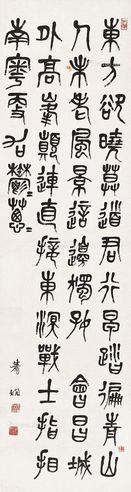 東方欲曉莫道君行早踏徧青山
人未老風景這邊獨好會昌城
外高峯顛連直接東溟戰士指相
南粵更加鬱蔥蔥